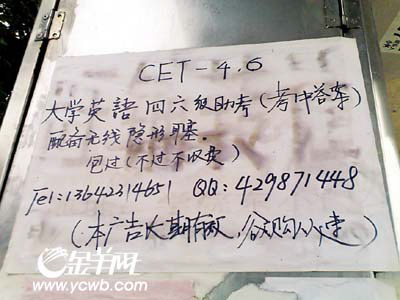 CET-4.6
大学英語四六级助考(考中答案)
配备无线隐形耳塞.
包过(不过不收费)
Tel:13642314651 QQ:429871448
(本广告长期有效,欲购从速)
金羊网
www.ycwb.com